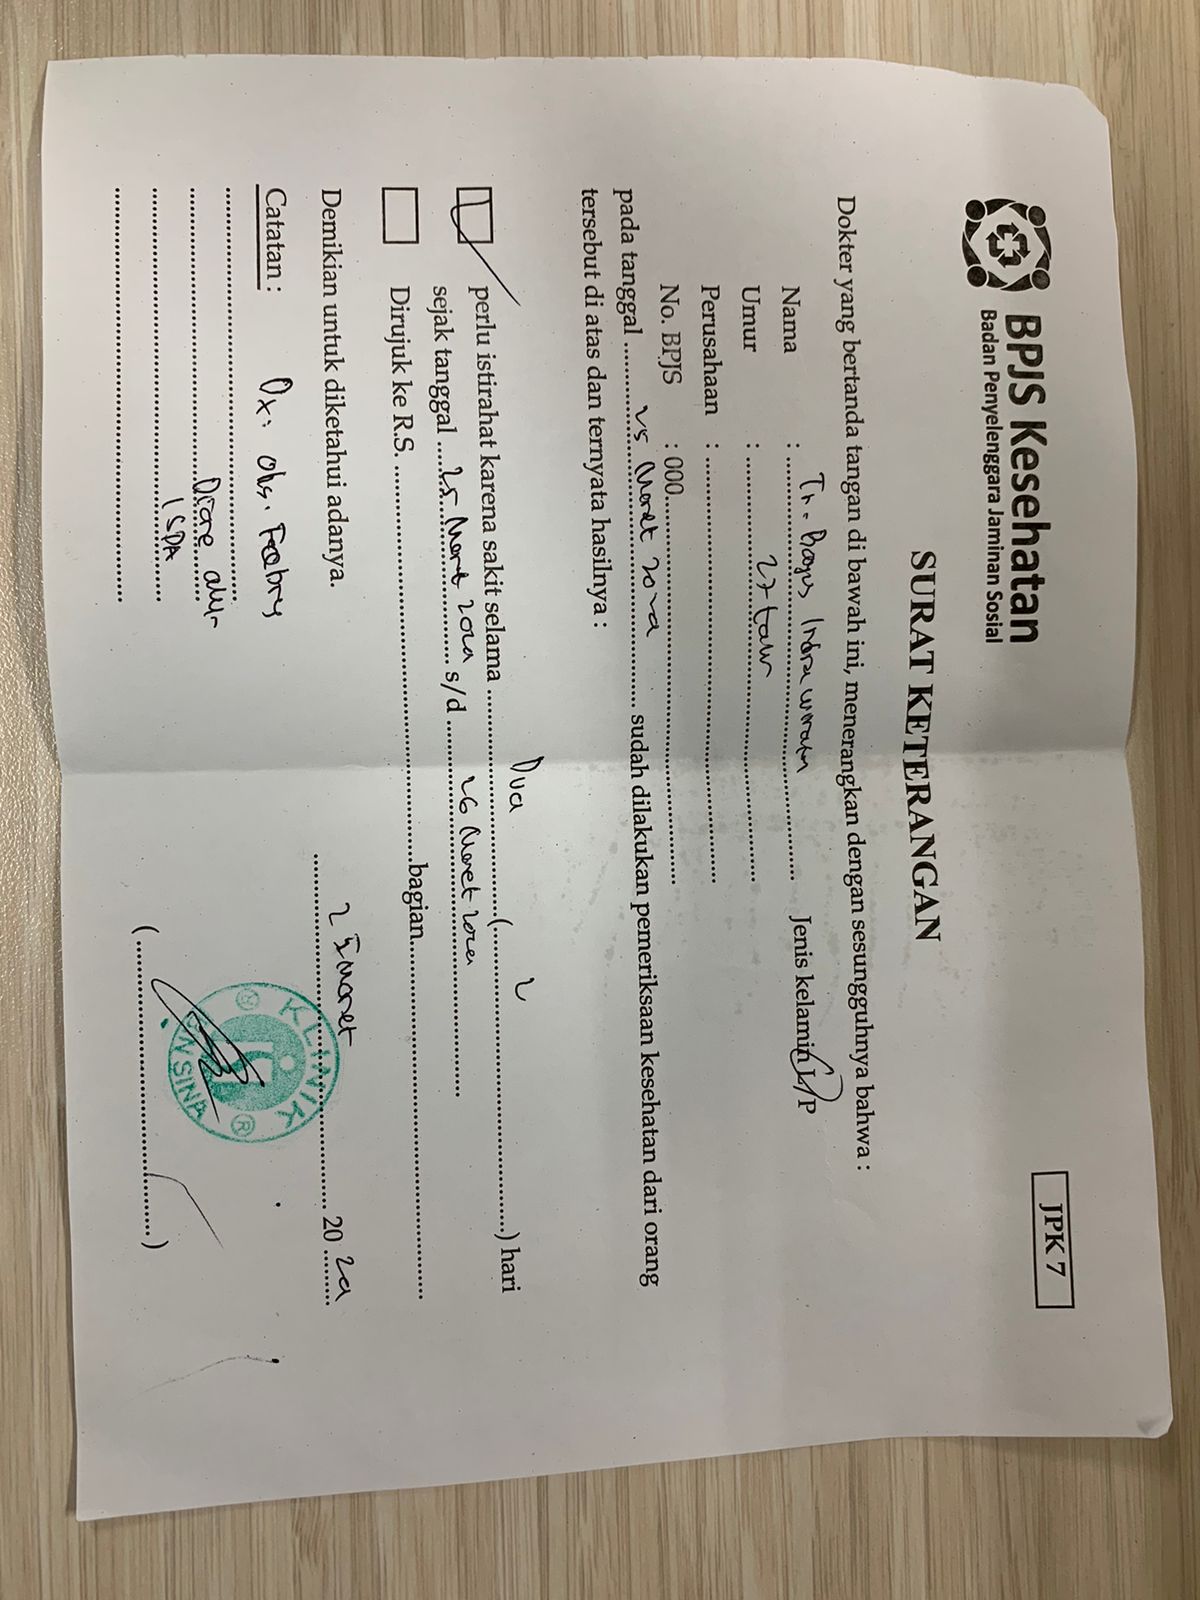 BPJS Kesehatan
Badan Penyelenggara Jaminan Sosial
JPK 7
SURAT KETERANGAN
Dokter yang bertanda tangan di bawah ini, menerangkan dengan sesungguhnya bahwa :
Nama : Tn. Bagus Indrawan Jenis kelamin L/P
Umur : 27 tahun
Perusahaan :
No. BPJS : 000
pada tanggal 25 Maret sudah dilakukan pemeriksaan kesehatan dari orang
tersebut di atas dan ternyata hasilnya :
perlu istirahat karena sakit selama Dua ( 2 ) hari
sejak tanggal 25 Maret s/d 26 Maret
Dirujuk ke R.S. bagian
Demikian untuk diketahui adanya.
Maret 20
Catatan : Dx. obs. Febris
Diare akut
ISPA
KLINIK
( )